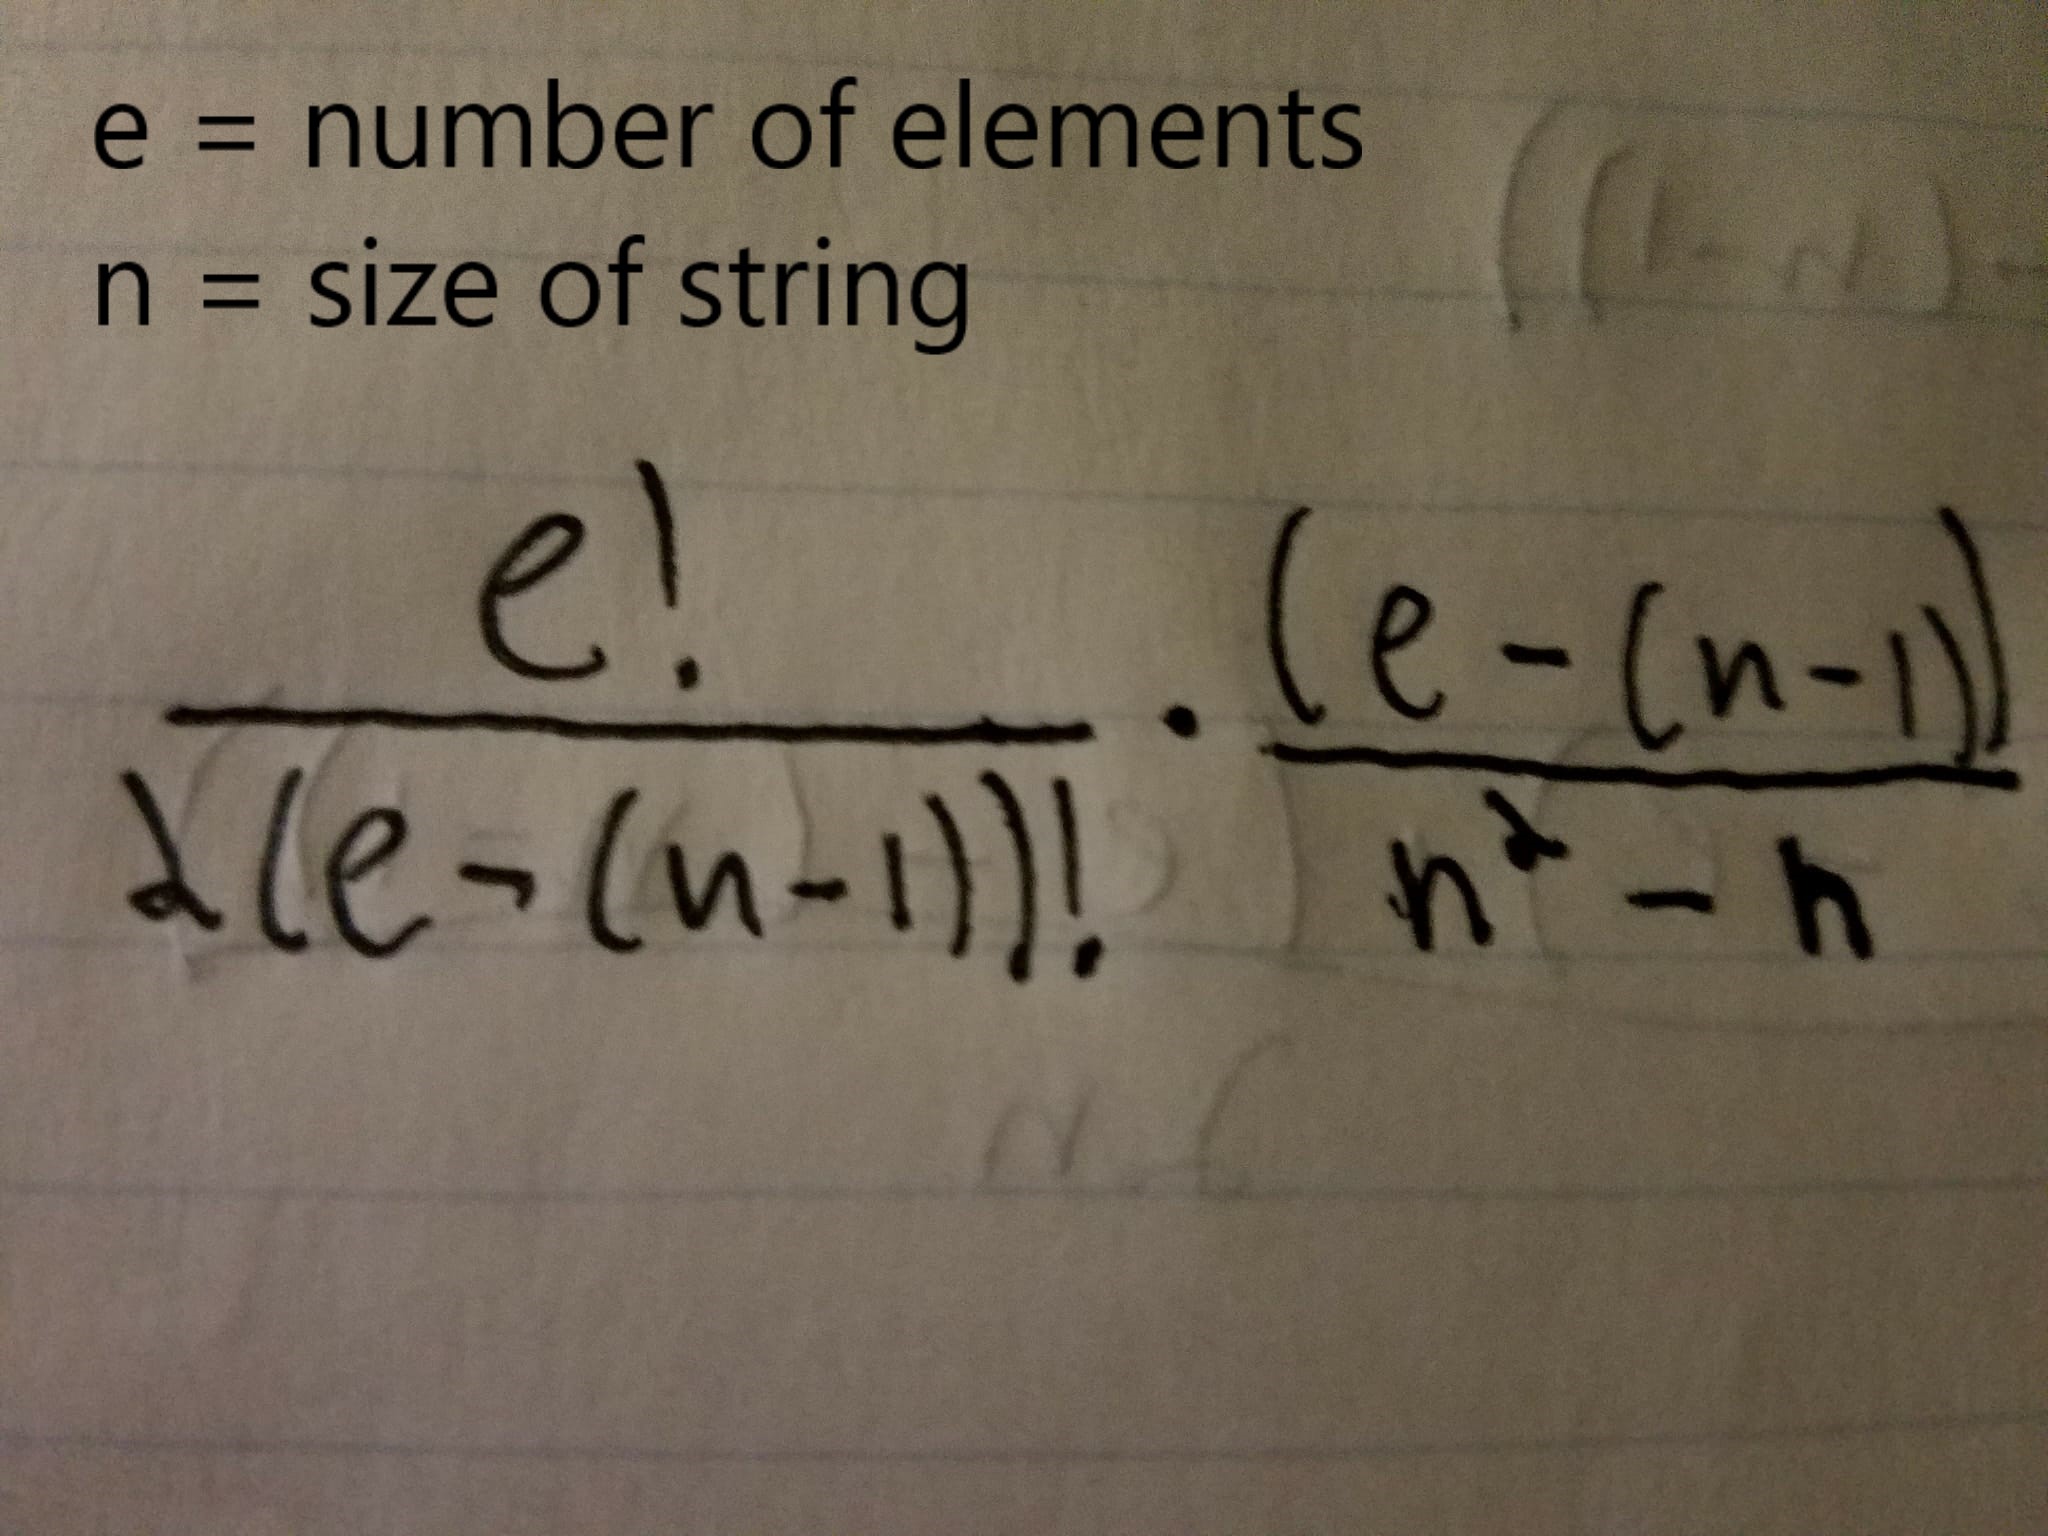 e = number of elements
n = size of string
e! / 2(e-(n-1))! · (e-(n-1)) / n² - n